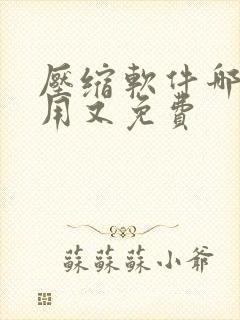 壓缩軟件哪
用又免費
蘇蘇蘇小爺